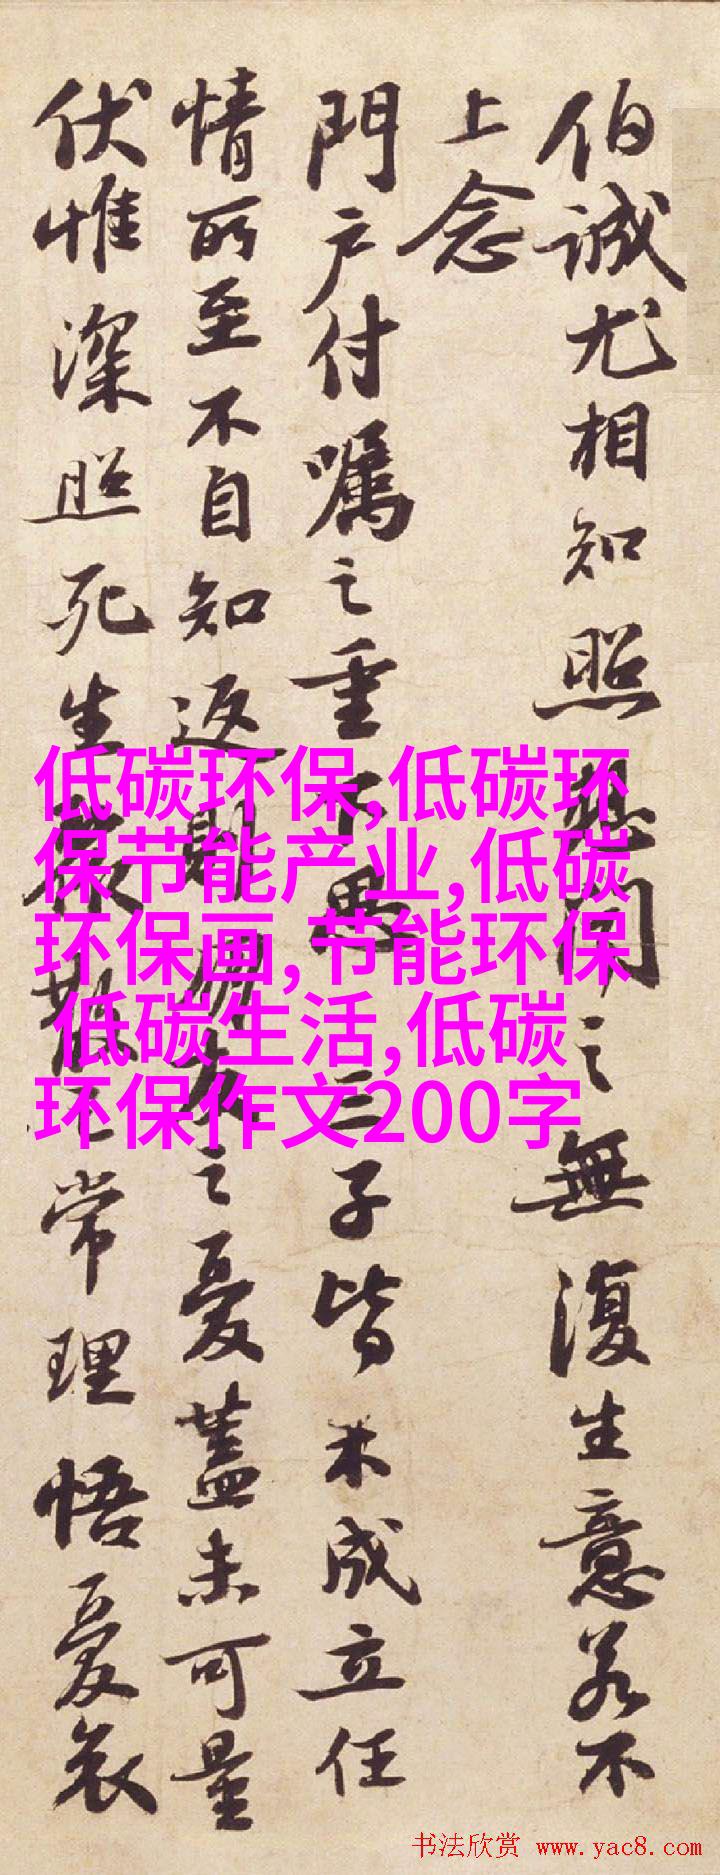 伯誠尤相知照想聞之無復生意若不
上念
門户付囑之重下愚三子皆未成立任
情所至不自知返則朋友之憂蓋未可量
伏惟深照死生聚散之常理悟憂哀
低碳环保,低碳环
保节能产业,低碳
环保画,节能环保
低碳生活,低碳
环保作文200字
书法欣赏 www.yac8.com